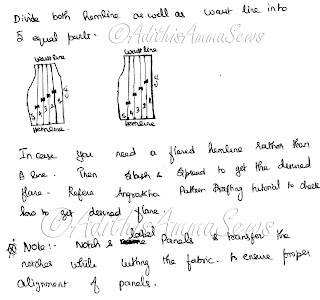 Divide both hemline as well as waist line into
5 equal parts.
©AdithisAmmaSews
waistline waistline
5 4 3 2 1 5 4 3 2 1
hemline hemline
In case you need a flared hemline rather than
A line. Then slash & spread to get the desired
flare. Refere Angrakha Pattern Drafting tutorial to check
how to get desired flare.
©AdithisAmmaSews
Note:- Notch & label Panels & transfer the
notches while cutting the fabric. to ensure proper
alignment of panels.